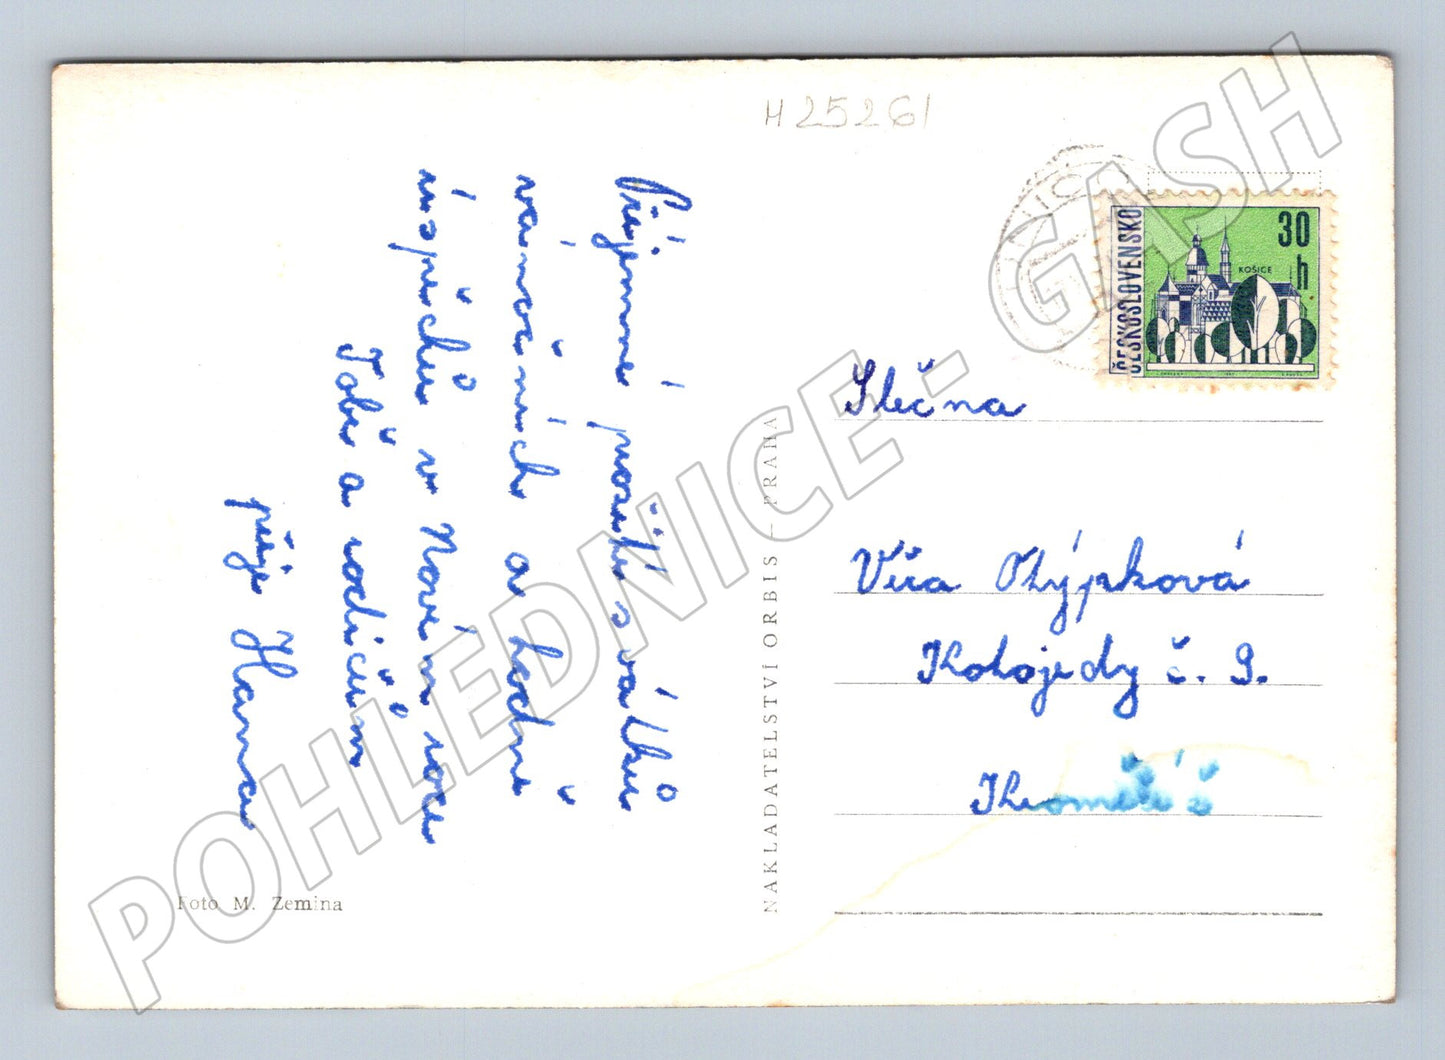 H 25261
Příjemné prožití svátků
vánočních a hodně
úspěchů v Novém roce
Tobě a rodičům
přeje Hana
Foto M. Zemina
NAKLADATELSTVÍ ORBIS — PRAHA
ČESKOSLOVENSKO
30
h
KOŠICE
Slečna
Věra Otýpková
Kotojedy č. 9.
Kroměříž
POHLEDNICE - GASH